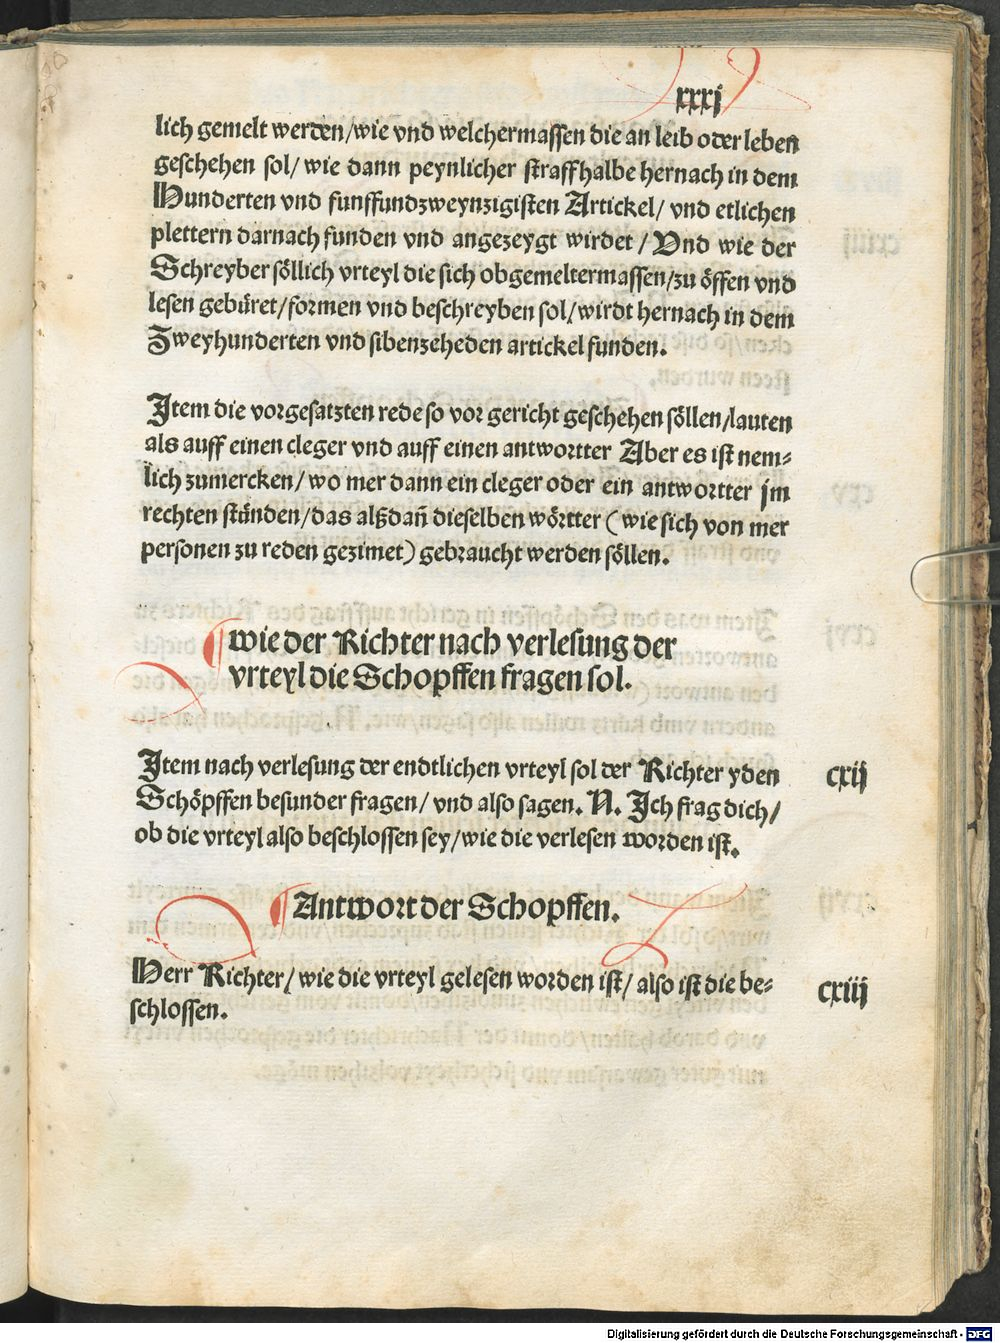 xxxj
lich gemelt werden/wie vnd welchermassen die an leib oder leben
geschehen sol/ wie dann peynlicher straffhalbe hernach in dem
Hunderten vnd funffundzweynzigisten Artickel/ vnd etlichen
plettern darnach funden vnd angezeygt wirdet/ Vnd wie der
Schreyber söllich vrteyl die sich obgemeltermassen/zu öffen vnd
lesen gebüret/formen vnd beschreyben sol/wirdt hernach in dem
Zweyhunderten vnd sibenzeheden artickel funden.
Item die vorgesatzten rede so vor gericht geschehen söllen/lauten
als auff einen cleger vnd auff einen antwortter Aber es ist nem⸗
lich zumercken/ wo mer dann ein cleger oder ein antwortter jm
rechten stünden/das alßdañ dieselben wörtter (wie sich von mer
personen zu reden gezimet) gebraucht werden söllen.
¶ wie der Richter nach verlesung der
vrteyl die Schopffen fragen sol.
Item nach verlesung der endtlichen vrteyl sol der Richter yden cxij
Schöpffen besunder fragen/ vnd also sagen. N. Ich frag dich/
ob die vrteyl also beschlossen sey/wie die verlesen worden ist.
¶ Antwort der Schopffen.
Herr Richter/ wie die vrteyl gelesen worden ist/ also ist die be⸗ cxiij
schlossen.
Digitalisierung gefördert durch die Deutsche Forschungsgemeinschaft - DFG